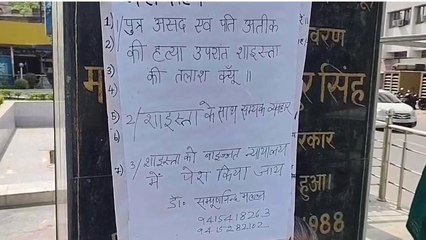 1) पुत्र असद एवं पति अतीक
की हत्या उपरांत शाइस्ता
की तलाश क्यूँ ॥
2/ शाइस्ता के साथ सम्यक व्यवहार
3/ शाइस्ता को बाइज्जत न्यायालय
में पेश किया जाय
डॉ॰ सम्पूर्णानन्द मल्ल
9415418263
9415282102
वरण
र सिंह
रकार
हुआ।
1988